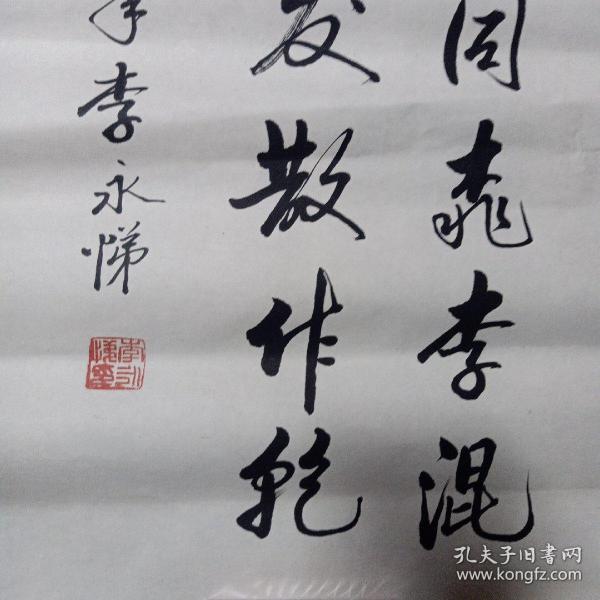 同桃李混
发散作乾
李永悌
李永悌印
孔夫子旧书网
www.kongfz.com